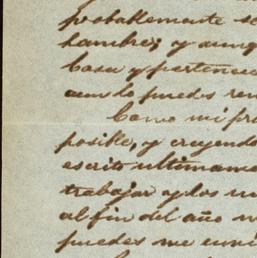 probablemente se
hambre; y aunq
Casa y pertenec
aun lo puedes ren
Como mi pro
posible, y creyendo
escrito ultimame
trabajar a los
al fin del año
puedes me envi